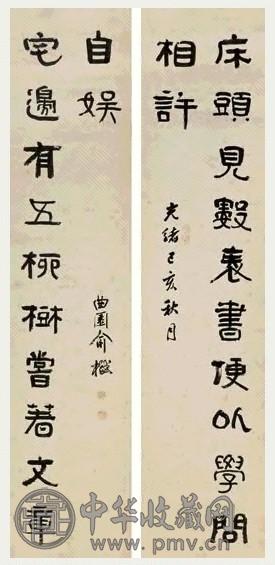 床頭見數袠書便以學問
相許
光緒己亥秋月
宅邊有五桞樹嘗著文章
自娛
曲園俞樾
中华收藏网
www.pmv.cn